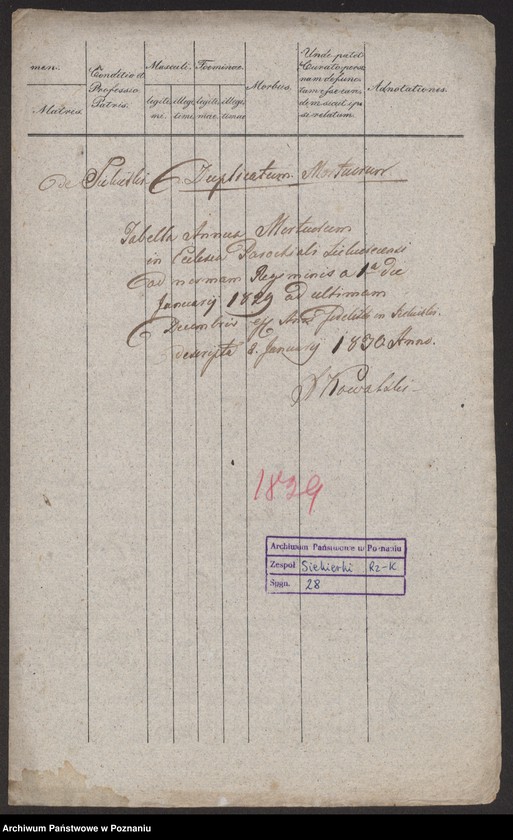 men.
Matris.
Conditio et
Professio
Patris.
Masculi.
Foeminae.
legiti
mi.
illegi
timi.
legiti
mae
illegi
timae
Morbus.
Unde patet
Curato perso
nam defunc
tam esse ean
dem sicuti ip
si relatum.
Adnotationes.
de Duplicatum Mortuorum
Tabella Annua Mortuorum
in Ecclesia Parochiali
ad normam Regiminis a 1ma die
January 1829 ad ultimam
Decembris Anni in
descripta 2. January 1830 Anno.
Kowalski
1829
Archiwum Państwowe w Poznaniu
Zespół Siekierki Rz-K
Sygn. 28
Archiwum Państwowe w Poznaniu